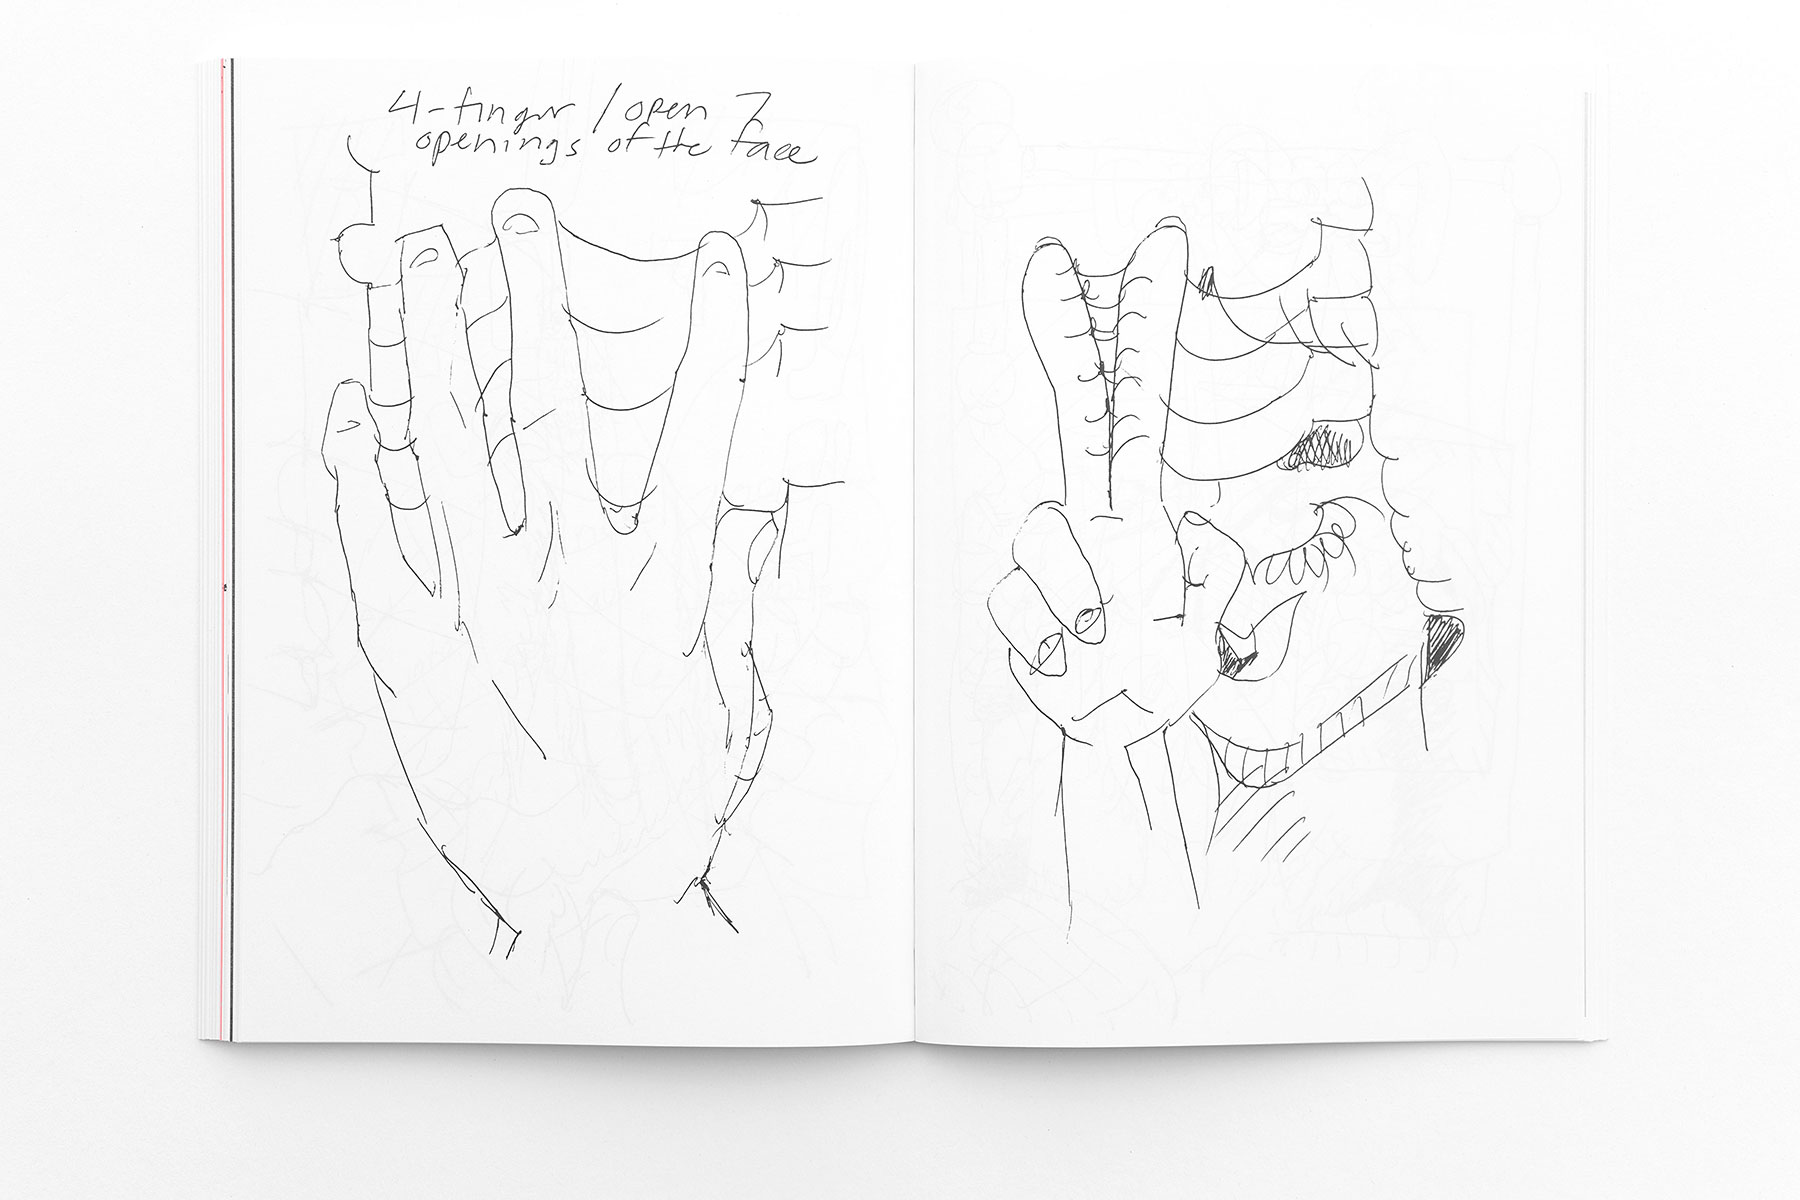 4-finger / open 7
openings of the face